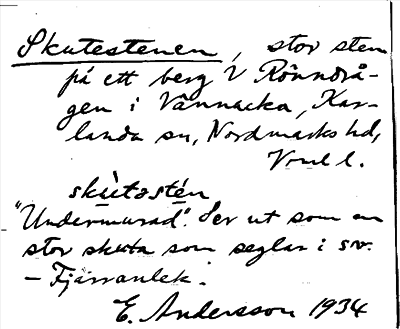 Skutestenen, stor sten
på ett berg V Rönndrå-
gen i Vännacka, Kar-
landa sn, Nordmarks hd,
Vrml l.
skùtəstén
"Undermurad". Ser ut som en
stor skuta som seglar i sv.
– Fjärranlek.
E. Andersson 1934